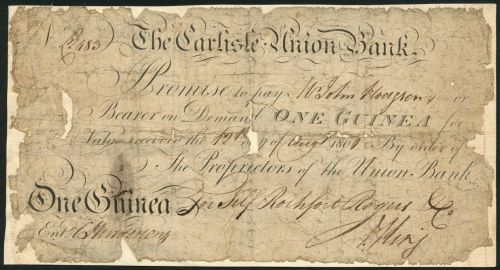 The Carlisle Union Bank
I Promise to pay Mr John Hodgson or
Bearer on Demand ONE GUINEA for
Value received the day of Augt 1801 By order of
The Proprietors of the Union Bank
One Guinea For Self Rochfort Rogers & Co.
Entd